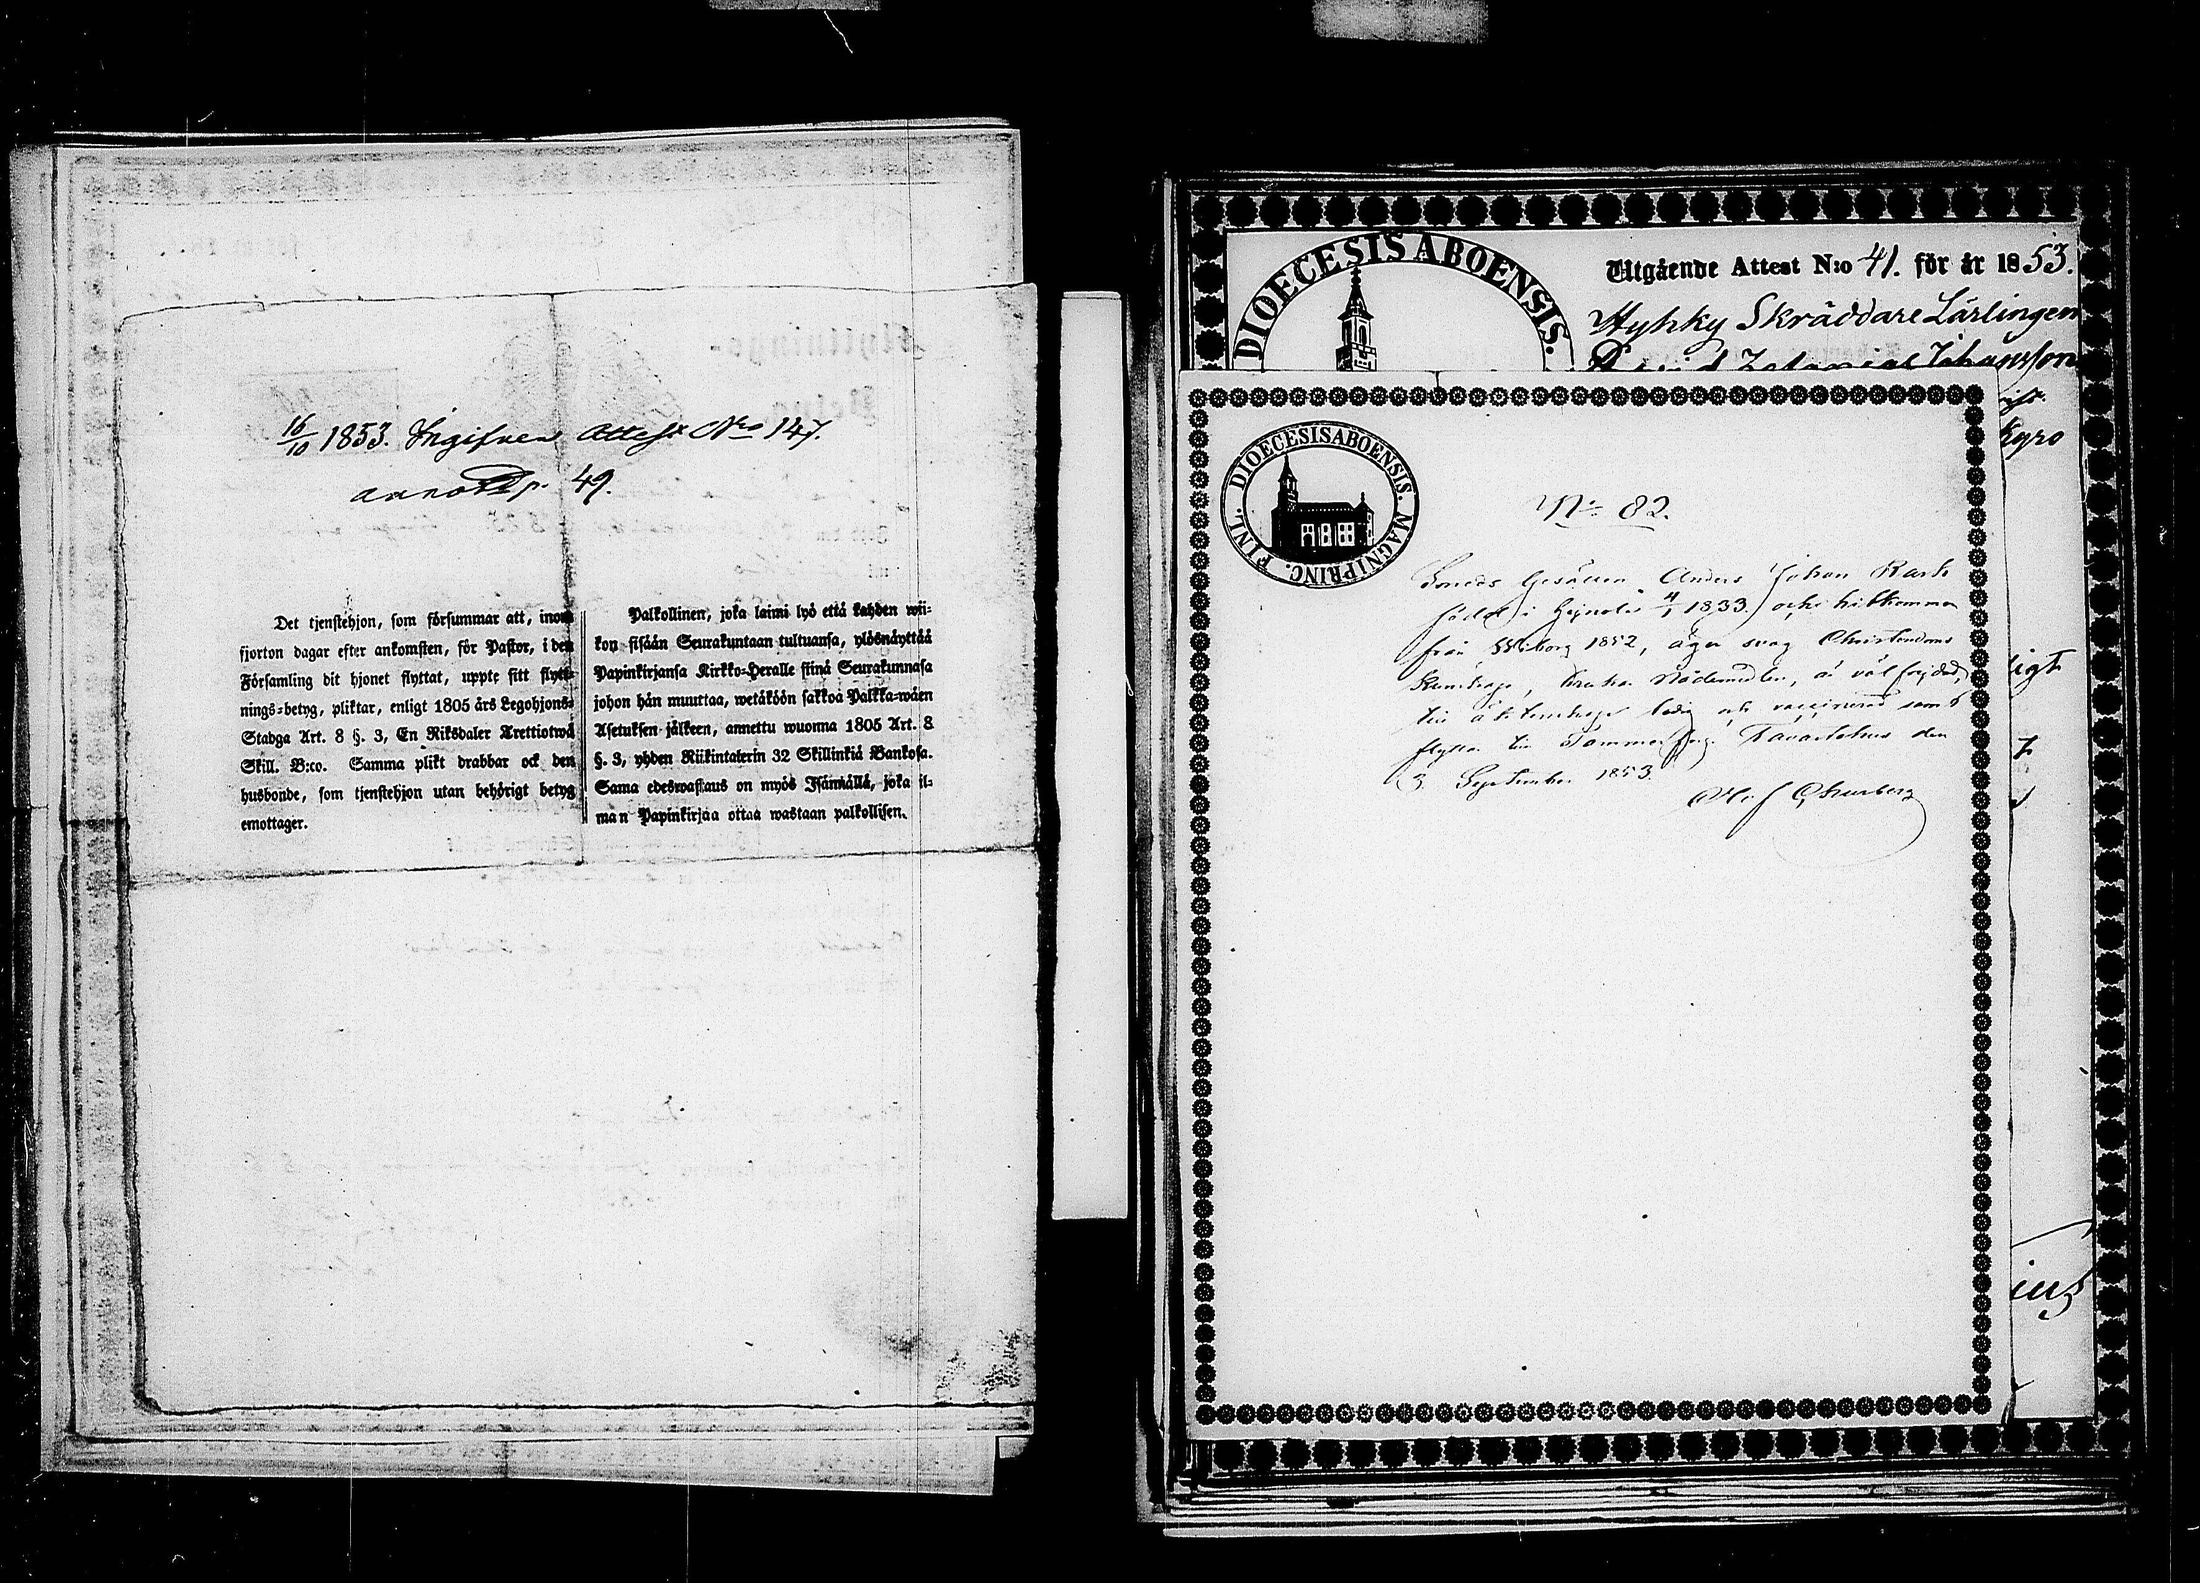 16/10 1853. Ingifven Attest No 147.
annot. p. 49.
Det tjenstehjon, som försummar att, inom
fjorton dagar efter ankomsten, för Pastor, i den
Församling dit hjonet flyttat, uppte sitt flytt-
nings-betyg, pliktar, enligt 1805 års Legohjons-
Stadga Art. 8 §. 3, En Riksdaler Trettiotwå
Skill. B:co. Samma plikt drabbar ock den
husbonde, som tjenstehjon utan behörigt betyg
emottager.
Palkollinen, joka laimi lyö että kahden wii-
kon sisään Seurakuntaan tultuansa, ylösnäyttää
Papinkirjansa Kirkko-Heralle siinä Seurakunnasa
johon hän muuttaa, wetäköön sakkoa Palkka-wäen
Asetuksen jälkeen, annettu wuonna 1805 Art. 8
§. 3, yhden Riikintalerin 32 Skillinkiä Bankosa.
Sama edeswastaus on myös Isännällä, joka il-
man Papinkirjaa ottaa wastaan palkollisen.
DIOECESIS ABOENSIS.
Utgående Attest N:o 41. för år 1853.
Hyhky Skräddare Lärlingen
Johansson
kyro
ligt
DIOECESIS ABOENSIS. MAGNI PRINC. FINL.
No 82.
Smeds Gesällen Anders Johan Rask
född i Heinola 4/1 1833, och hitkommen
från Wiborg 1852, äger svag Christendoms
Kunskap, brukar Nådemedlen, är väl frejdad,
till äktenskap ledig och vaccinerad samt
flyttar till Tammerfors. Tavastehus den
3 September 1853.